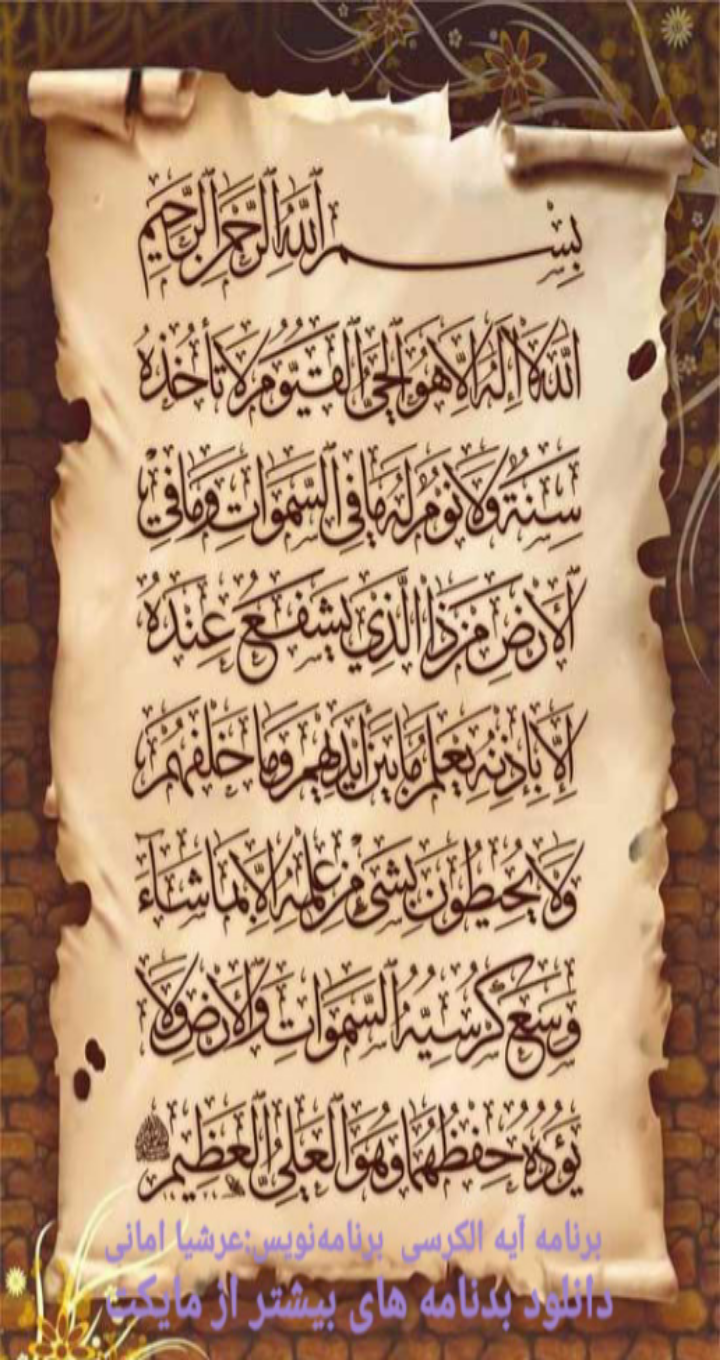 بِسْمِ ٱللَّهِ ٱلرَّحْمَٰنِ ٱلرَّحِيمِ
ٱللَّهُ لَا إِلَٰهَ إِلَّا هُوَ ٱلْحَيُّ ٱلْقَيُّومُ لَا تَأْخُذُهُ
سِنَةٌ وَلَا نَوْمٌ لَهُ مَا فِي ٱلسَّمَوَاتِ وَمَا فِي
ٱلْأَرْضِ مَنْ ذَا ٱلَّذِي يَشْفَعُ عِنْدَهُ
إِلَّا بِإِذْنِهِ يَعْلَمُ مَا بَيْنَ أَيْدِيهِمْ وَمَا خَلْفَهُمْ
وَلَا يُحِيطُونَ بِشَيْءٍ مِنْ عِلْمِهِ إِلَّا بِمَا شَاءَ
وَسِعَ كُرْسِيُّهُ ٱلسَّمَوَاتِ وَٱلْأَرْضَ وَلَا
يَؤُدُهُ حِفْظُهُمَا وَهُوَ ٱلْعَلِيُّ ٱلْعَظِيمُ
برنامه آیه الکرسی برنامه‌نویس:عرشیا امانی
دانلود بدنامه های بیشتر از مایکت